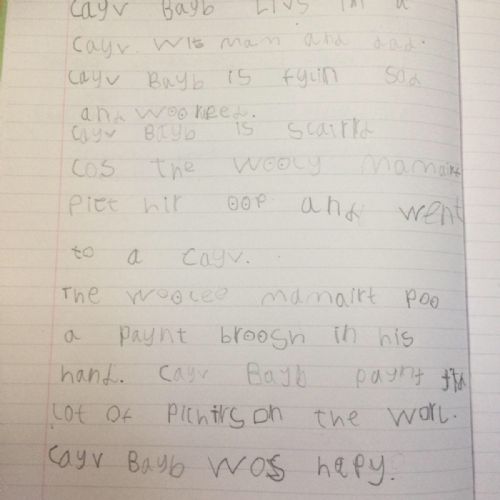 Cayv Bayb Livs in a
Cayv wit mam and dad.
Cayv Bayb is fylin sad
and wooreed.
Cayv Bayb is scairrd
cos the woolly mamairt
Pict hir oop and went
to a cayv.
The woolee mamairt poo
a paynt broosh in his
hand. Cayv Bayb paynt
Lot of Pichirs on the worl.
Cayv Bayb wos hapy.